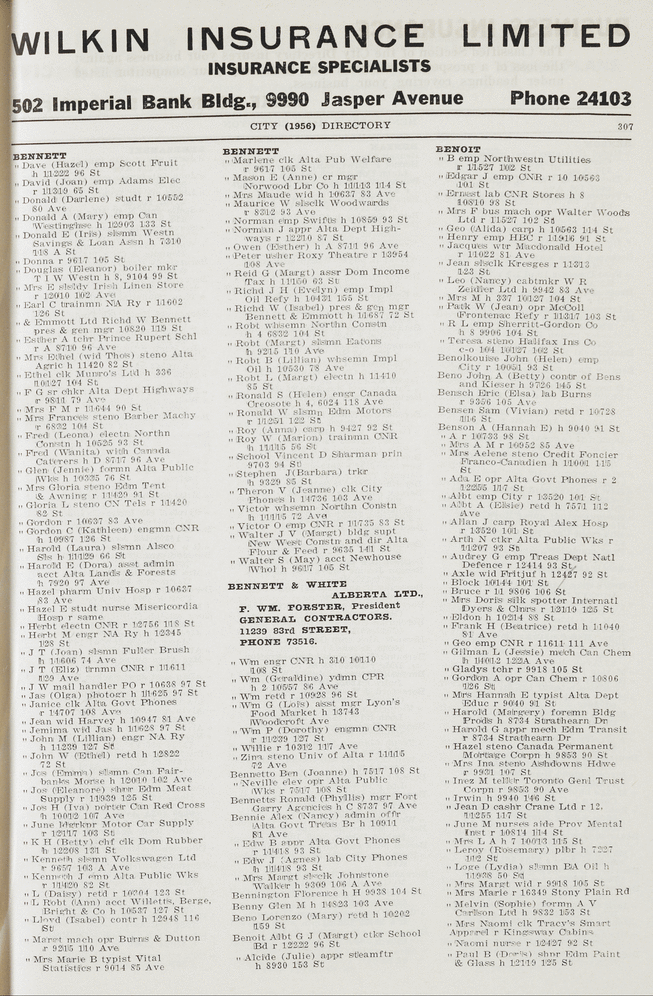 WILKIN INSURANCE LIMITED
INSURANCE SPECIALISTS
502 Imperial Bank Bldg., 9990 Jasper Avenue Phone 24103
CITY (1956) DIRECTORY 307
BENNETT
" Dave (Hazel) emp Scott Fruit
h 11222 96 St
" David (Joan) emp Adams Elec
r 11319 65 St
" Donald (Darlene) studt r 10552
80 Ave
" Donald A (Mary) emp Can
Westinghse h 12903 133 St
" Donald E (Iris) slsmn Westn
Savings & Loan Assn h 7310
118 A St
" Donna r 9617 105 St
" Douglas (Eleanor) boiler mkr
T I W Westn h 8, 9104 99 St
" Mrs E slsldy Irish Linen Store
r 12010 102 Ave
" Earl C trainmn NA Ry r 11602
126 St
" & Emmott Ltd Richd W Bennett
pres & gen mgr 10820 119 St
" Esther A tchr Prince Rupert Schl
r A 8710 96 Ave
" Mrs Ethel (wid Thos) steno Alta
Agric h 11420 82 St
" Ethel clk Munro's Ltd h 336
10127 104 St
" F G sr chkr Alta Dept Highways
r 9811 79 Ave
" Mrs F M r 11644 90 St
" Mrs Frances steno Barber Machy
r 6832 104 St
" Fred (Leona) electn Northn
Constn h 10525 93 St
" Fred (Wanita) with Canada
Caterers h 8717 96 Ave
" Glen (Jennie) formn Alta Public
Wks h 10335 76 St
" Mrs Gloria steno Edm Tent
& Awning r 11429 91 St
" Gloria L steno CN Tels r 11420
82 St
" Gordon r 10637 83 Ave
" Gordon C (Kathleen) engmn CNR
h 10987 126 St
" Harold (Laura) slsmn Alsco
Sls h 11129 66 St
" Harold E (Dora) asst admin
acct Alta Lands & Forests
h 7920 97 Ave
" Hazel pharm Univ Hosp r 10637
83 Ave
" Hazel E studt nurse Misericordia
Hosp r same
" Herbt electn CNR r 12756 118 St
" Herbt M engr NA Ry h 12345
128 St
" J T (Joan) slsmn Fuller Brush
h 11606 74 Ave
" J T (Eliz) trnmn CNR r 11611
129 Ave
" J W mail handler PO r 10638 97 St
" Jas (Olga) photogr h 11625 97 St
" Janice clk Alta Govt Phones
r 14707 108 Ave
" Jean wid Harvey h 10947 81 Ave
" Jemima wid Jas h 11628 97 St
" John M (Lillian) engr NA Ry
h 11239 127 St
" John W (Ethel) retd h 12822
72 St
" Jos (Emma) slsmn Can Fair-
banks Morse h 12010 102 Ave
" Jos (Eleanore) shpr Edm Meat
Supply r 11939 125 St
" Jos H (Iva) porter Can Red Cross
h 10012 107 Ave
" June Motor Car Supply
r 12117 103 St
" K H (Betty) chf clk Dom Rubber
h 12208 131 St
" Kenneth slsmn Volkswagen Ltd
r 9657 103 A Ave
" Kenneth J emp Alta Public Wks
r 11420 82 St
" L (Daisy) retd r 10304 123 St
" L Robt (Ann) acct Willetts, Berge,
Bright & Co h 10537 127 St
" Lloyd (Isabel) contr h 12948 116
St
" Maret mach opr Burns & Dutton
r 9215 110 Ave
" Mrs Marie B typist Vital
Statistics r 9014 85 Ave
BENNETT
" Marlene clk Alta Pub Welfare
r 9617 105 St
" Mason E (Anne) cr mgr
Norwood Lbr Co h 11113 114 St
" Mrs Maude wid h 10637 83 Ave
" Maurice W slsclk Woodwards
r 8312 93 Ave
" Norman emp Swifts h 10859 93 St
" Norman J appr Alta Dept High-
ways r 12210 87 St
" Owen (Esther) h A 8711 96 Ave
" Peter usher Roxy Theatre r 13954
108 Ave
" Reid G (Margt) assr Dom Income
Tax h 11150 63 St
" Richd J H (Evelyn) emp Impl
Oil Refy h 10431 155 St
" Richd W (Isabel) pres & gen mgr
Bennett & Emmott h 11687 72 St
" Robt whsemn Northn Constn
h 4 6832 104 St
" Robt (Margt) slsmn Eatons
h 9215 110 Ave
" Robt B (Lillian) whsemn Impl
Oil h 10530 78 Ave
" Robt L (Margt) electn h 11410
85 St
" Ronald S (Helen) engr Canada
Creosote h 4, 6024 118 Ave
" Ronald W slsmn Edm Motors
r 11251 122 St
" Roy (Anna) carp h 9427 92 St
" Roy W (Marion) trainmn CNR
h 11115 56 St
" School Vincent D Sharman prin
9703 94 St
" Stephen J (Barbara) trkr
h 9329 85 St
" Theron V (Jeanne) clk City
Phones h 14736 103 Ave
" Victor whsemn Northn Constn
h 11115 72 Ave
" Victor O emp CNR r 11735 83 St
" Walter J V (Margt) bldg supt
New West Constn and dir Alta
Flour & Feed r 9635 141 St
" Walter S (May) acct Newhouse
Whol h 9617 105 St
BENNETT & WHITE
ALBERTA LTD.,
F. WM. FORSTER, President
GENERAL CONTRACTORS.
11239 83rd STREET,
PHONE 73516.
" Wm engr CNR h 310 10110
108 St
" Wm (Geraldine) ydmn CPR
h 2 10557 86 Ave
" Wm retd r 10928 96 St
" Wm G (Lois) asst mgr Lyon's
Food Market h 13743
Woodcroft Ave
" Wm P (Dorothy) engmn CNR
r 11239 127 St
" Willie r 10312 117 Ave
" Zina steno Univ of Alta r 11115
72 Ave
Bennetto Ben (Joanne) h 7517 108 St
" Neville elev opr Alta Public
Wks r 7517 108 St
Bennetts Ronald (Phyllis) mgr Fort
Garry Agencies h C 8737 97 Ave
Bennie Alex (Nancy) admin offr
Alta Govt Treas Br h 10911
81 Ave
" Edw B appr Alta Govt Phones
r 11418 93 St
" Edw J (Agnes) lab City Phones
h 11418 93 St
" Mrs Margt slsclk Johnstone
Walker h 9309 106 A Ave
Bennington Florence h H 9938 104 St
Benny Glen M h 14823 103 Ave
Beno Lorenzo (Mary) retd h 10202
159 St
Benoit Albt G J (Margt) ctkr School
Bd r 12222 96 St
" Alcide (Julie) appr steamftr
h 8930 153 St
BENOIT
" B emp Northwestn Utilities
r 11527 102 St
" Edgar J emp CNR r 10 10563
101 St
" Ernest lab CNR Stores h 8
10810 98 St
" Mrs F bus mach opr Walter Woods
Ltd r 11527 102 St
" Geo (Alida) carp h 10563 114 St
" Henry emp HBC r 11916 91 St
" Jacques wtr Macdonald Hotel
r 11022 81 Ave
" Jean slsclk Kresges r 11313
123 St
" Leo (Nancy) cabtmkr W R
Zeidler Ltd h 9942 83 Ave
" Mrs M h 337 10127 104 St
" Patk W (Jean) opr McColl
Frontenac Refy r 11317 103 St
" R L emp Sherritt-Gordon Co
h 8 9906 104 St
" Teresa steno Halifax Ins Co
c-o 104 10127 102 St
Benolkouise John (Helen) emp
City r 10051 93 St
Beno John A (Betty) contr of Bens
and Kieser h 9726 145 St
Bensch Eric (Elsa) lab Burns
r 9356 105 Ave
Bensen Sam (Vivian) retd r 10728
116 St
Benson A (Hannah E) h 9040 91 St
" A r 10733 98 St
" Mrs A M r 10952 85 Ave
" Mrs Aelene steno Credit Foncier
Franco-Canadien h 11001 115
St
" Ada E opr Alta Govt Phones r 2
12255 117 St
" Albt emp City r 13520 101 St
" Albt A (Elsie) retd h 7571 112
Ave
" Allan J carp Royal Alex Hosp
r 13520 101 St
" Arth N ctkr Alta Public Wks r
11207 93 St
" Audrey G emp Treas Dept Natl
Defence r 12414 93 St
" Axle wid Fritjuf h 12427 92 St
" Block 10144 101 St
" Bruce r 11 9806 106 St
" Mrs Doris silk spotter Internatl
Dyers & Clnrs r 12119 125 St
" Eldon h 10214 88 St
" Frank H (Beatrice) retd h 11040
81 Ave
" Geo emp CNR r 11611 111 Ave
" Gilman L (Jessie) mech Can Chem
h 14012 122A Ave
" Gladys tchr r 9918 105 St
" Gordon A opr Can Chem r 10806
126 St
" Mrs Hannah E typist Alta Dept
Educ r 9040 91 St
" Harold (Margery) foremn Bldg
Prods h 8734 Strathearn Dr
" Harold G appr mech Edm Transit
r 8734 Strathearn Dr
" Hazel steno Canada Permanent
Mortage Corpn h 9853 90 St
" Mrs Ina steno Ashdowns Hdwe
r 9931 107 St
" Inez M teller Toronto Genl Trust
Corpn r 9853 90 Ave
" Irwin h 9940 146 St
" Jean D cashr Crane Ltd r 12,
11255 117 St
" June M nurses aide Prov Mental
Inst r 10814 114 St
" Mrs L A h 7 10013 115 St
" Leroy (Rosemary) plbr h 7227
112 St
" Loge (Lydia) slsmn BA Oil h
11938 50 St
" Mrs Margt wid r 9918 105 St
" Mrs Marie r 16349 Stony Plain Rd
" Melvin (Sophie) formn A V
Carlson Ltd h 9832 153 St
" Mrs Naomi clk Tracy's Smart
Apparel r Kingsway Cabins
" Naomi nurse r 12427 92 St
" Paul B (Doris) shpr Edm Paint
& Glass h 12119 125 St